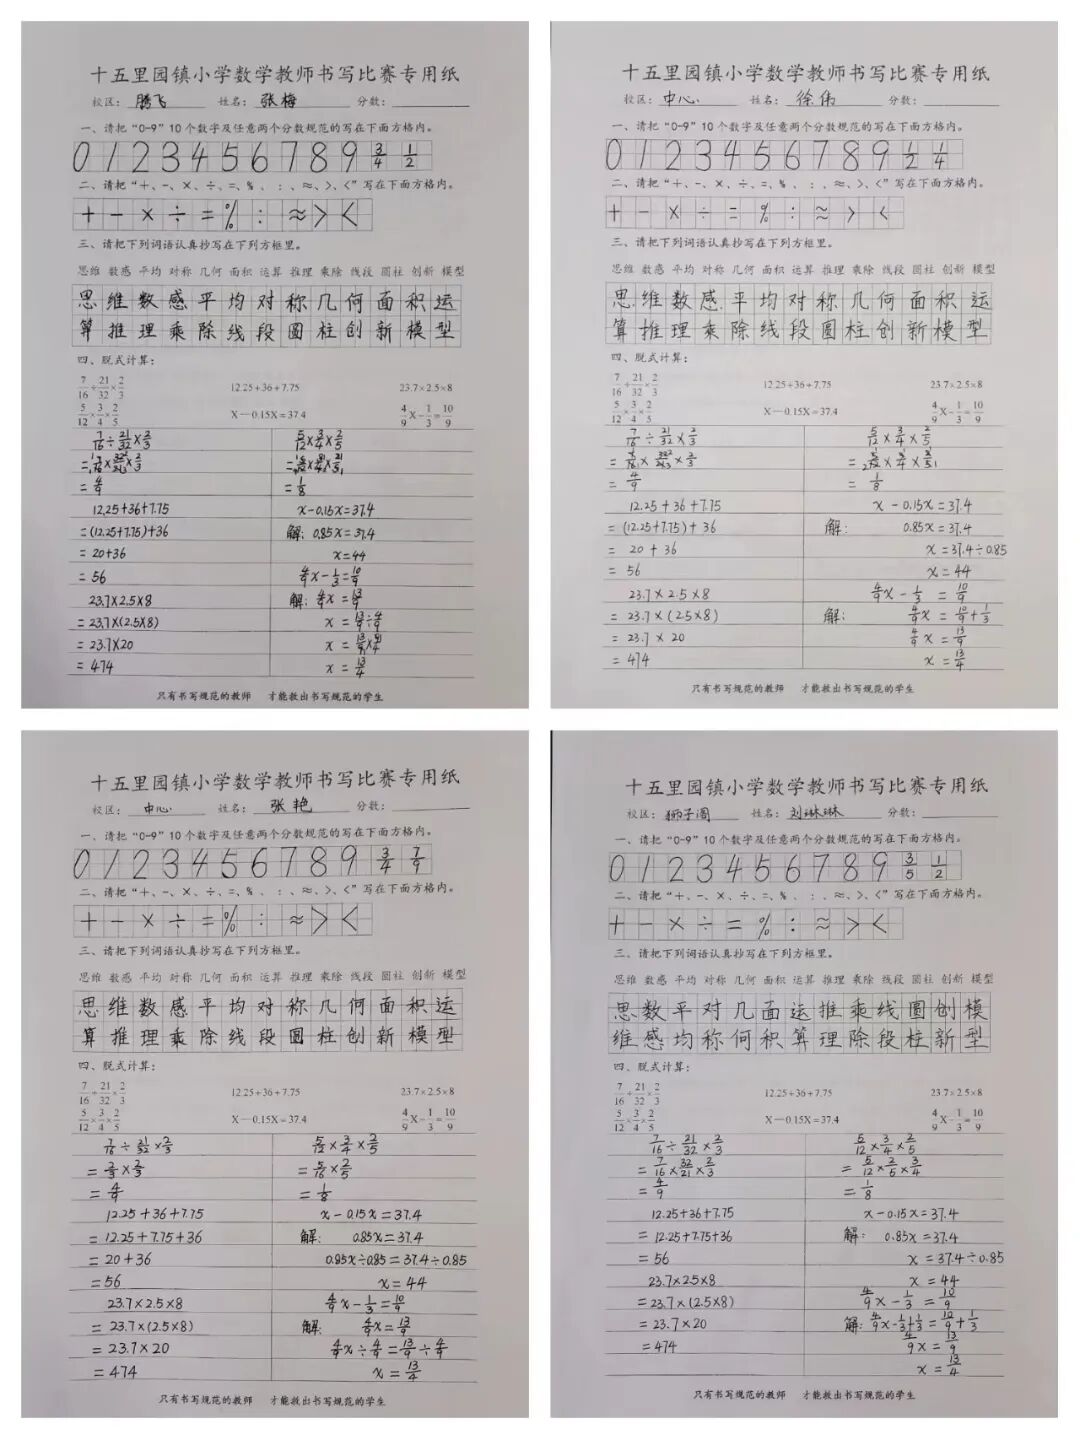 十五里园镇小学数学教师书写比赛专用纸
校区：腾飞 姓名：张梅 分数：
一、请把“0-9”10个数字及任意两个分数规范的写在下面方格内。
0 1 2 3 4 5 6 7 8 9 3/4 1/2
二、请把“+、-、×、÷、=、%、:、≈、>、<”写在下面方格内。
+ - × ÷ = % : ≈ > <
三、请把下列词语认真抄写在下列方框里。
思维 数感 平均 对称 几何 面积 运算 推理 乘除 线段 圆柱 创新 模型
思维数感平均对称几何面积运
算推理乘除线段圆柱创新模型
四、脱式计算：
7/16÷21/32×2/3 12.25+36+7.75 23.7×2.5×8
5/12×3/4×2/5 X—0.15X=37.4 4/9X-1/3=10/9
7/16÷21/32×2/3 5/12×3/4×2/5
=4/9 =1/8
12.25+36+7.75 x-0.15x=37.4
=(12.25+7.75)+36 解：0.85x=37.4
=20+36 x=44
=56 4/9x-1/3=10/9
23.7×2.5×8 解：4/9x=13/9
=23.7×(2.5×8) x=13/9÷4/9
=23.7×20
=474 x=13/4
只有书写规范的教师 才能教出书写规范的学生
十五里园镇小学数学教师书写比赛专用纸
校区：中心 姓名：徐伟 分数：
一、请把“0-9”10个数字及任意两个分数规范的写在下面方格内。
0 1 2 3 4 5 6 7 8 9 1/2 1/4
二、请把“+、-、×、÷、=、%、:、≈、>、<”写在下面方格内。
+ - × ÷ = % : ≈ > <
三、请把下列词语认真抄写在下列方框里。
思维 数感 平均 对称 几何 面积 运算 推理 乘除 线段 圆柱 创新 模型
思维数感平均对称几何面积运
算推理乘除线段圆柱创新模型
四、脱式计算：
7/16÷21/32×2/3 12.25+36+7.75 23.7×2.5×8
5/12×3/4×2/5 X—0.15X=37.4 4/9X-1/3=10/9
7/16÷21/32×2/3 5/12×3/4×2/5
=4/9 =1/8
12.25+36+7.75 x-0.15x=37.4
=(12.25+7.75)+36 解：0.85x=37.4
=20+36 x=37.4÷0.85
=56 x=44
23.7×2.5×8 4/9x-1/3=10/9
=23.7×(2.5×8) 解：4/9x=10/9+1/3
=23.7×20 4/9x=13/9
=474 x=13/4
只有书写规范的教师 才能教出书写规范的学生
十五里园镇小学数学教师书写比赛专用纸
校区：中心 姓名：张艳 分数：
一、请把“0-9”10个数字及任意两个分数规范的写在下面方格内。
0 1 2 3 4 5 6 7 8 9 3/4 7/9
二、请把“+、-、×、÷、=、%、:、≈、>、<”写在下面方格内。
+ - × ÷ = % : ≈ > <
三、请把下列词语认真抄写在下列方框里。
思维 数感 平均 对称 几何 面积 运算 推理 乘除 线段 圆柱 创新 模型
思维数感平均对称几何面积运
算推理乘除线段圆柱创新模型
四、脱式计算：
7/16÷21/32×2/3 12.25+36+7.75 23.7×2.5×8
5/12×3/4×2/5 X—0.15X=37.4 4/9X-1/3=10/9
7/16÷21/32×2/3 5/12×3/4×2/5
=2/3×2/3 =5/16×2/5
=4/9 =1/8
12.25+36+7.75 x-0.15x=37.4
=12.25+7.75+36 解：0.85x=37.4
=20+36 0.85x÷0.85=37.4÷0.85
=56 x=44
23.7×2.5×8 4/9x-1/3=10/9
=23.7×(2.5×8) 解：4/9x=13/9
=23.7×20 4/9x÷4/9=13/9÷4/9
=474 x=13/4
只有书写规范的教师 才能教出书写规范的学生
十五里园镇小学数学教师书写比赛专用纸
校区：狮子阁 姓名：刘琳琳 分数：
一、请把“0-9”10个数字及任意两个分数规范的写在下面方格内。
0 1 2 3 4 5 6 7 8 9 3/5 1/2
二、请把“+、-、×、÷、=、%、:、≈、>、<”写在下面方格内。
+ - × ÷ = % : ≈ > <
三、请把下列词语认真抄写在下列方框里。
思维 数感 平均 对称 几何 面积 运算 推理 乘除 线段 圆柱 创新 模型
思数平对几面运推乘线圆创模
维感均称何积算理除段柱新型
四、脱式计算：
7/16÷21/32×2/3 12.25+36+7.75 23.7×2.5×8
5/12×3/4×2/5 X—0.15X=37.4 4/9X-1/3=10/9
7/16÷21/32×2/3 5/12×3/4×2/5
=7/16×32/21×2/3 =5/12×2/5×3/4
=4/9 =1/8
12.25+36+7.75 x-0.15x=37.4
=12.25+7.75+36 解：0.85x=37.4
=56 x=37.4÷0.85
23.7×2.5×8 x=44
=23.7×(2.5×8) 4/9x-1/3=10/9
=23.7×20 解：4/9x-1/3+1/3=10/9+1/3
=474 4/9x=13/9
x=13/4
只有书写规范的教师 才能教出书写规范的学生